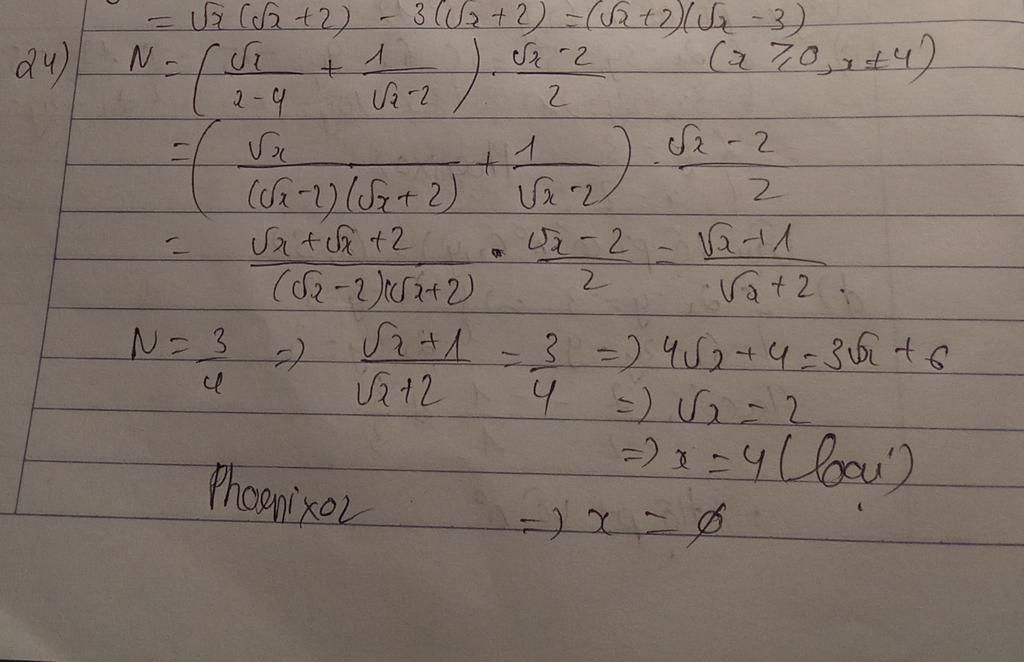 = √x(√x+2) - 3(√x+2) = (√x+2)(√x-3)
24) N = (√x/(x-4) + 1/(√x-2)) . (√x-2)/2 (x ≥ 0, x ≠ 4)
= (√x/((√x-2)(√x+2)) + 1/(√x-2)) . (√x-2)/2
= (√x+√x+2)/((√x-2)(√x+2)) . (√x-2)/2 = (√x+1)/(√x+2) .
N = 3/4 => (√x+1)/(√x+2) = 3/4 => 4√x+4 = 3√x+6
=> √x = 2
=> x = 4 (loại)
Phoenix02 => x = ∅